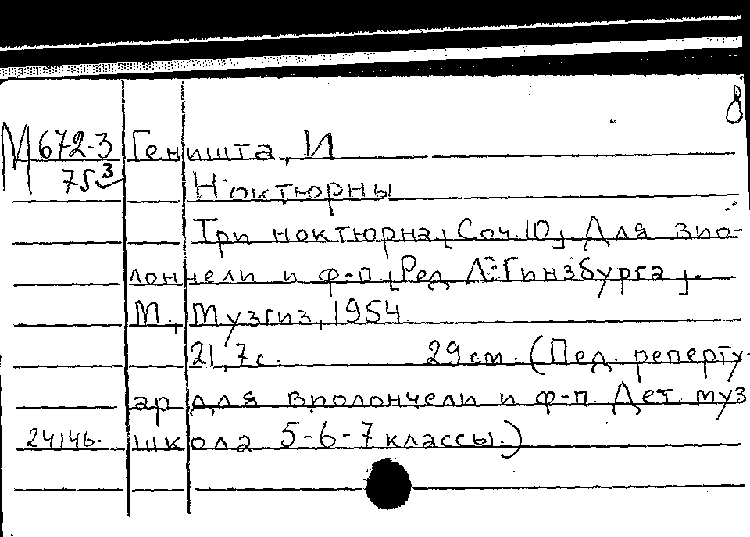 8
М 672-3 Геништа, И
75³ Ноктюрны
Три ноктюрна [Соч. 10] Для вио-
лончели и ф-п [Ред Л. Гинзбурга].
М., Музгиз, 1954
21, 7 с. 29 см. (Пед. реперту-
ар для виолончели и ф-п. Дет. муз
24146. школа 5-6-7 классы.)